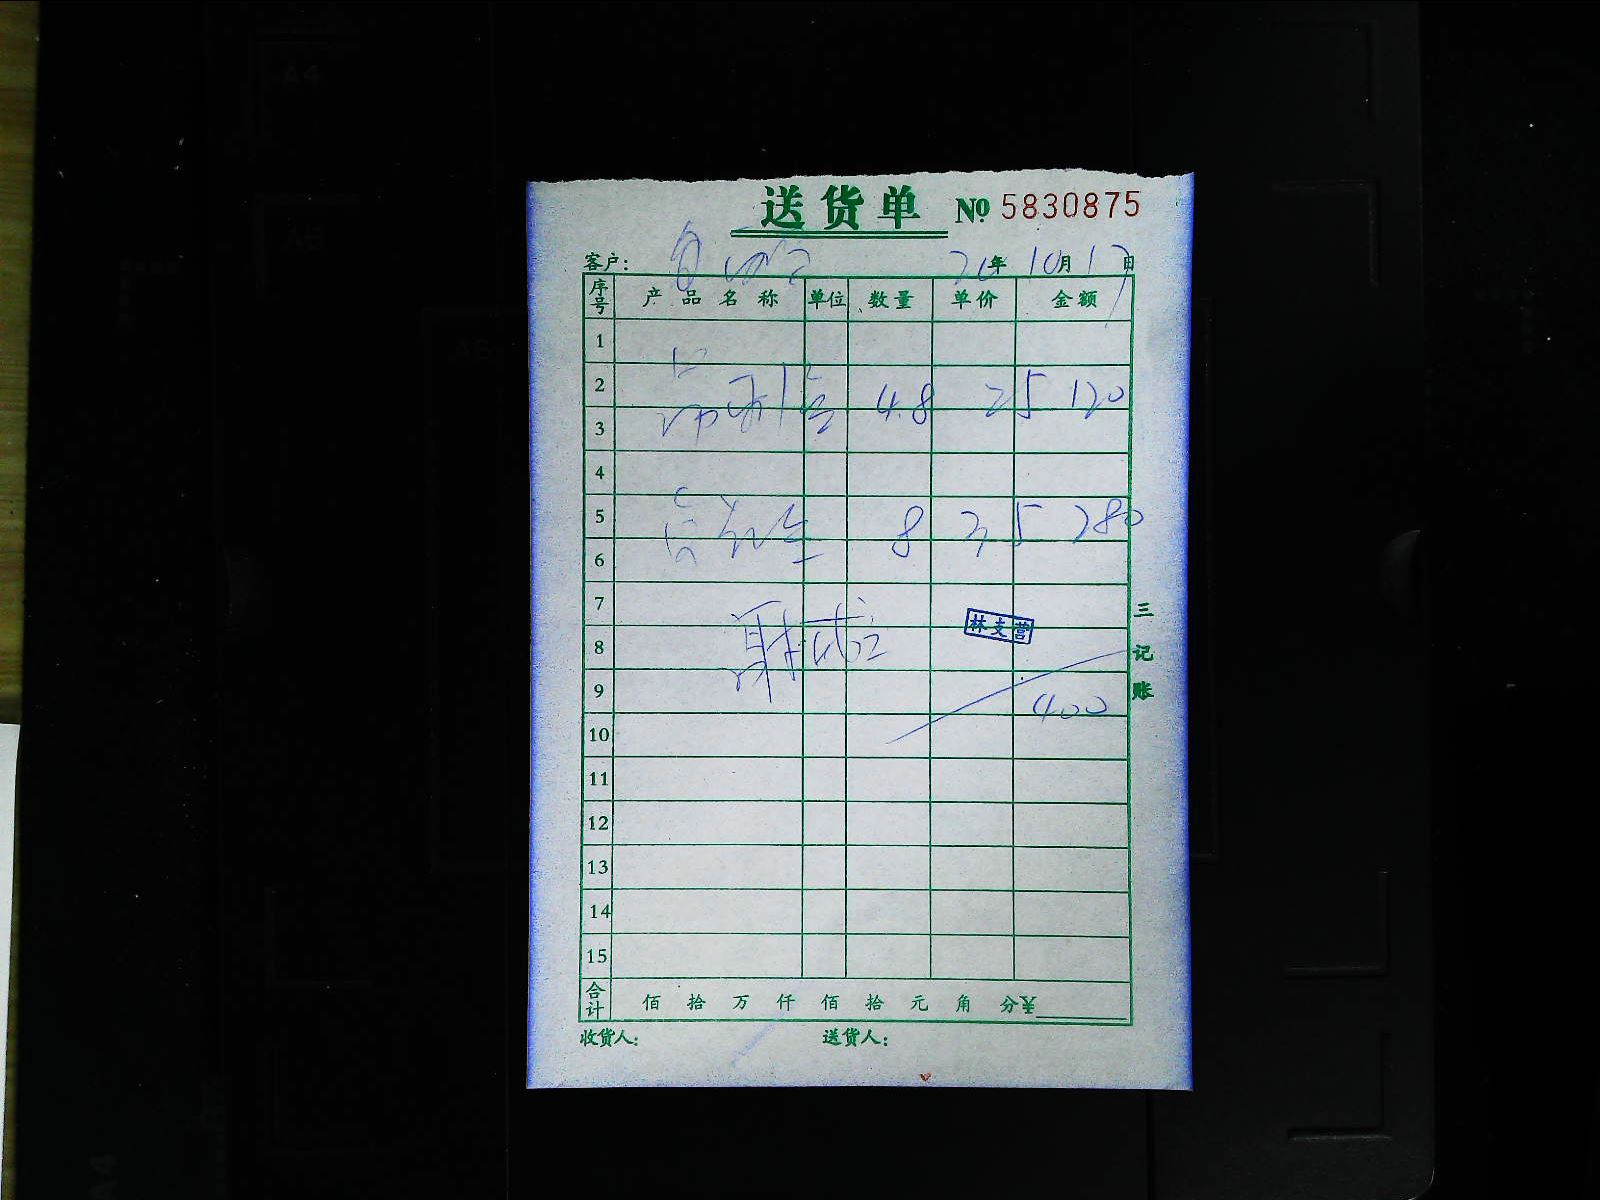 送货单 № 5830875
客户: 20年 10月 17日
序号 产品名称 单位 数量 单价 金额
1
2 4.8 25 120
3
4
5 8 35 280
6
7
林支营
8
三记账
9 400
10
11
12
13
14
15
合计 佰 拾 万 仟 佰 拾 元 角 分¥
收货人: 送货人: